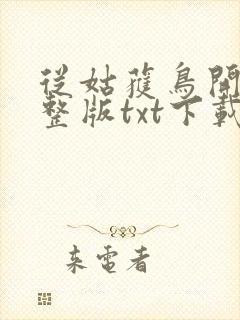 從姑獲鳥開
整版txt下載
來電者